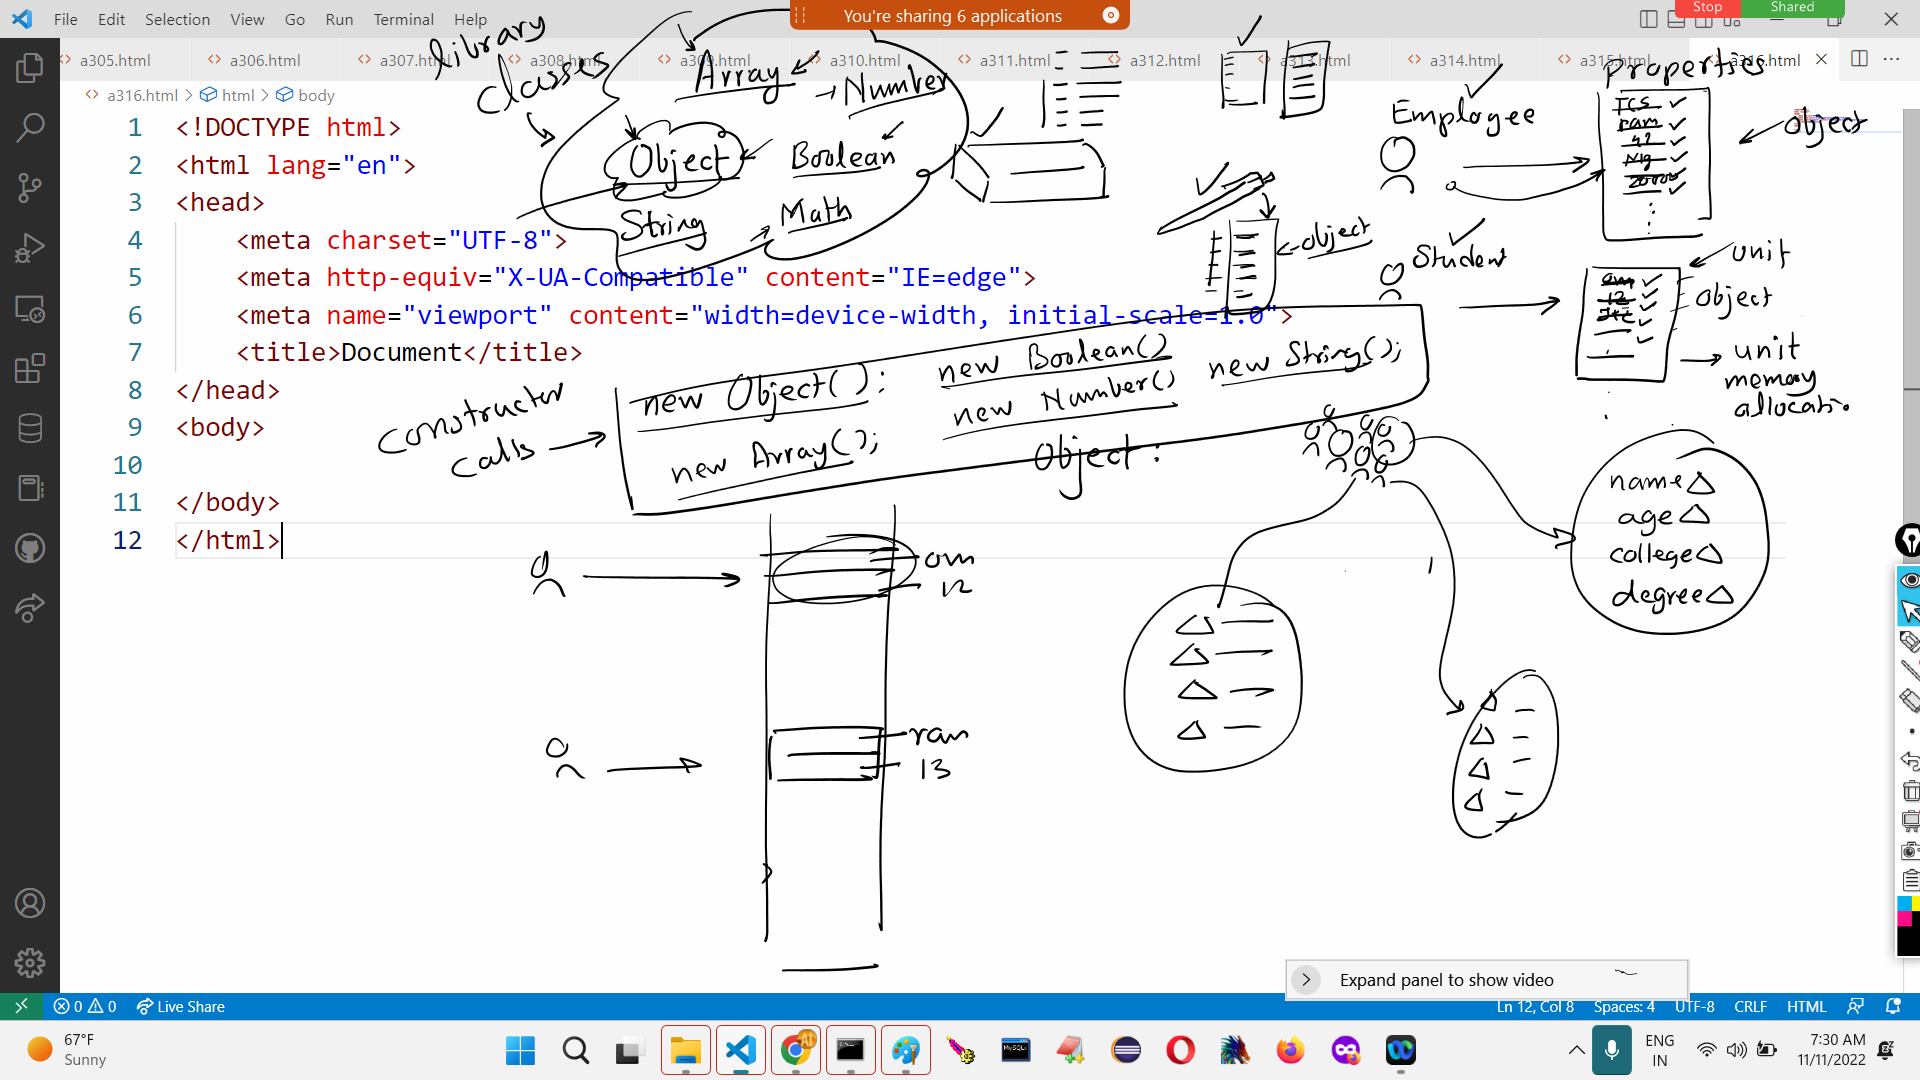 File Edit Selection View Go Run Terminal Help
You're sharing 6 applications
Stop Shared
a305.html a306.html a307.html a308.html a309.html a310.html a311.html a312.html a313.html a314.html a315.html a316.html
a316.html > html > body
1 <!DOCTYPE html>
2 <html lang="en">
3 <head>
4 <meta charset="UTF-8">
5 <meta http-equiv="X-UA-Compatible" content="IE=edge">
6 <meta name="viewport" content="width=device-width, initial-scale=1.0">
7 <title>Document</title>
8 </head>
9 <body>
10
11 </body>
12 </html>
library
classes
Array
Number
Object
Boolean
String
Math
Employee
Properties
TCS
ram
42
20000
object
object
Student
unit
12
object
unit
memory
allocatio
constructor
calls
new Object();
new Boolean()
new String();
new Number()
new Array();
Object:
name
age
college
degree
om
12
ram
13
Expand panel to show video
0 0 Live Share
Ln 12, Col 8 Spaces: 4 UTF-8 CRLF HTML
67°F
Sunny
ENG
IN
7:30 AM
11/11/2022